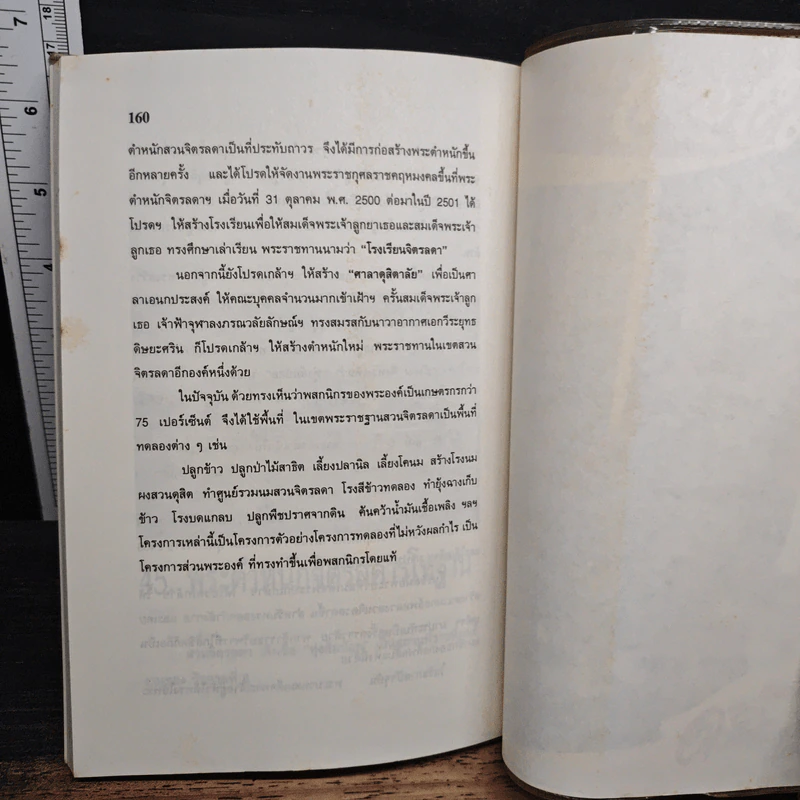 7
6
5
160
ตำหนักสวนจิตรลดาเป็นที่ประทับถาวร จึงได้มีการก่อสร้างพระตำหนักขึ้น
อีกหลายครั้ง และได้โปรดให้จัดงานพระราชกุศลราชคฤหมงคลขึ้นที่พระ
ตำหนักจิตรลดาฯ เมื่อวันที่ 31 ตุลาคม พ.ศ. 2500 ต่อมาในปี 2501 ได้
โปรดฯ ให้สร้างโรงเรียนเพื่อให้สมเด็จพระเจ้าลูกยาเธอและสมเด็จพระเจ้า
ลูกเธอ ทรงศึกษาเล่าเรียน พระราชทานนามว่า "โรงเรียนจิตรลดา"
นอกจากนี้ยังโปรดเกล้าฯ ให้สร้าง "ศาลาดุสิดาลัย" เพื่อเป็นศา
ลาเอนกประสงค์ ให้คณะบุคคลจำนวนมากเข้าเฝ้าฯ ครั้นสมเด็จพระเจ้าลูก
เธอ เจ้าฟ้าจุฬาลงกรณวลัยลักษณ์ฯ ทรงสมรสกับนาวาอากาศเอกวีระยุทธ
ดิษยะศริน ก็โปรดเกล้าฯ ให้สร้างตำหนักใหม่ พระราชทานในเขตสวน
จิตรลดาอีกองค์หนึ่งด้วย
ในปัจจุบัน ด้วยทรงเห็นว่าพสกนิกรของพระองค์เป็นเกษตรกรกว่า
75 เปอร์เซ็นต์ จึงได้ใช้พื้นที่ ในเขตพระราชฐานสวนจิตรลดาเป็นพื้นที่
ทดลองต่าง ๆ เช่น
ปลูกข้าว ปลูกป่าไม้สาธิต เลี้ยงปลานิล เลี้ยงโคนม สร้างโรงนม
ผงสวนดุสิต ทำศูนย์รวมนมสวนจิตรลดา โรงสีข้าวทดลอง ทำยุ้งฉางเก็บ
ข้าว โรงบดแกลบ ปลูกพืชปราศจากดิน ค้นคว้าน้ำมันเชื้อเพลิง ฯลฯ
โครงการเหล่านี้เป็นโครงการตัวอย่างโครงการทดลองที่ไม่หวังผลกำไร เป็น
โครงการส่วนพระองค์ ที่ทรงทำขึ้นเพื่อพสกนิกรโดยแท้